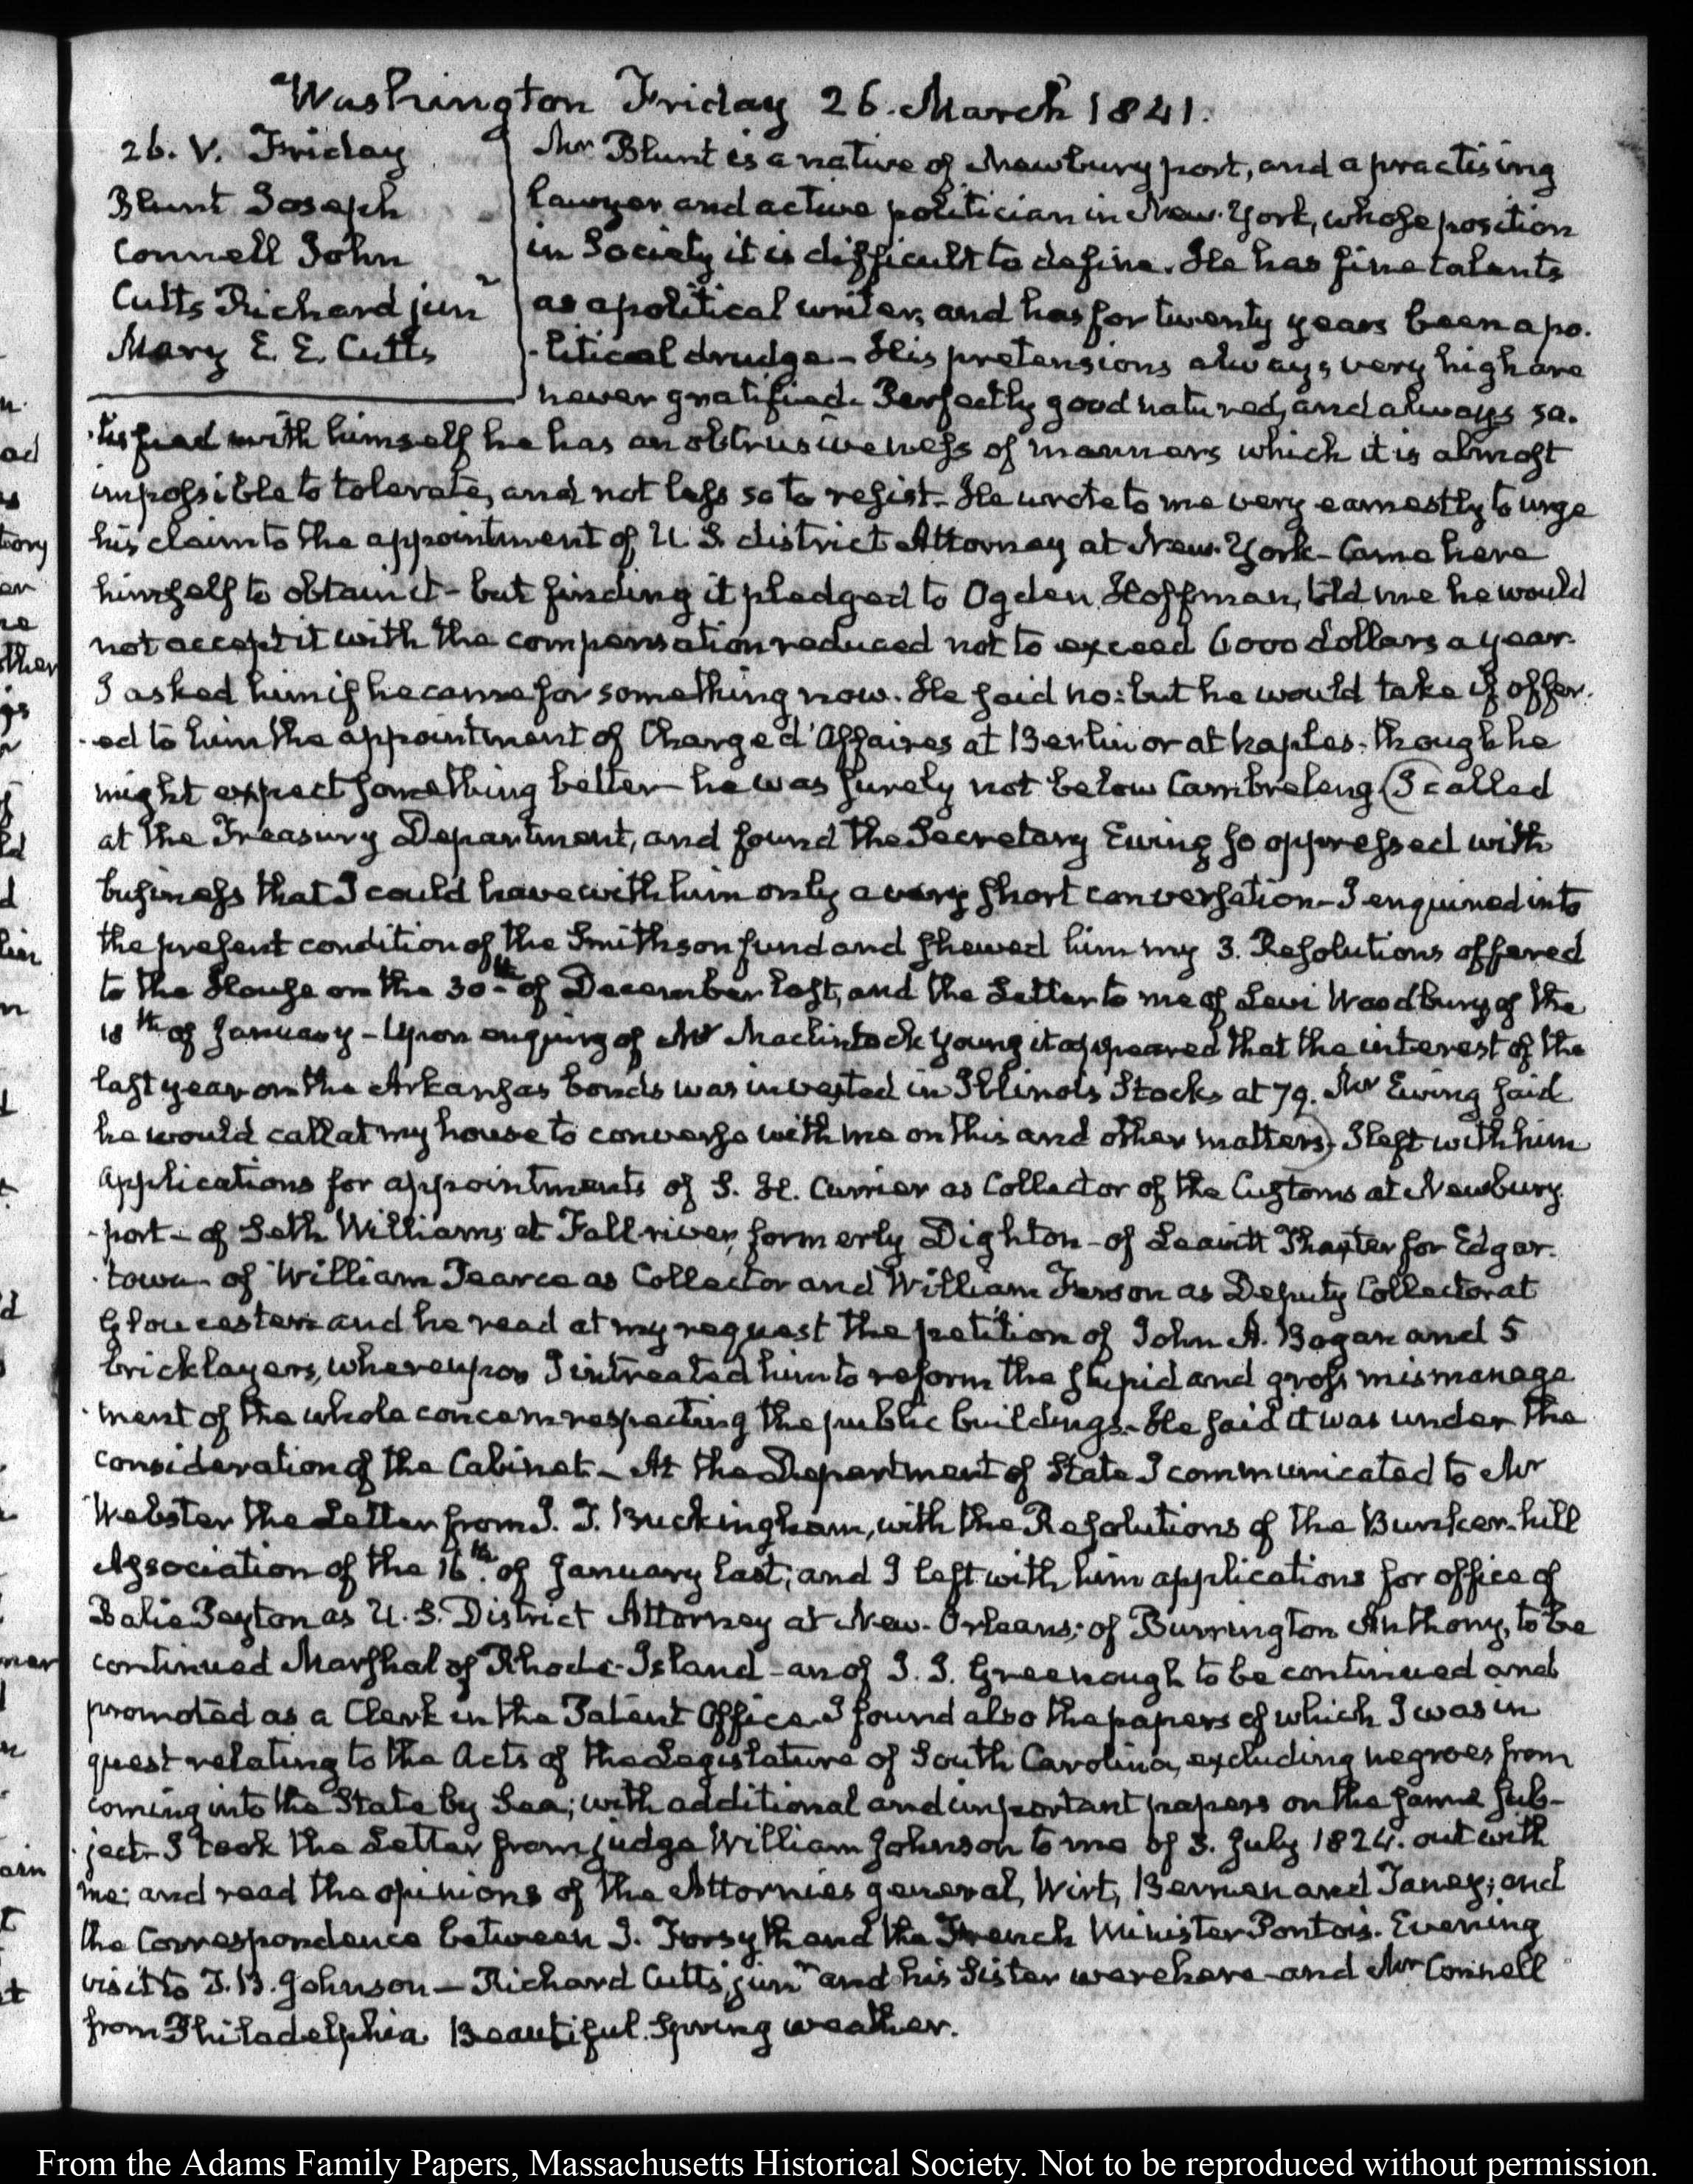 Washington Friday 26. March 1841.
26. V. Friday
Blunt Joseph
Connell John
Cutts Richard junr
Mary E. E. Cutts
Mr Blunt is a native of Newburyport, and a practising
lawyer and active politician in New-York, whose position
in Society it is difficult to define. He has fine talents
as a political writer, and has for twenty years been a po-
-litical drudge - His pretensions always very high are
never gratified. Perfectly good natured, and always sa-
-tisfied with himself he has an obtrusiveness of manners which it is almost
impossible to tolerate, and not less so to resist - He wrote to me very earnestly to urge
his claim to the appointment of U. S. district Attorney at New-York - Came here
himself to obtain it - but finding it pledged to Ogden Hoffman, told me he would
not accept it with the compensation reduced not to exceed 6000 dollars a year.
I asked him if he came for something now. He said no: but he would take if offer-
-ed to him the appointment of Charge d'Affaires at Berlin or at Naples - though he
might expect something better - he was surely not below Cambreleng (I called
at the Treasury Department, and found the Secretary Ewing so oppressed with
business that I could have with him only a very short conversation - I enquired into
the present condition of the Smithson fund and shewed him my 3. Resolutions offered
to the House on the 30th of December last, and the Letter to me of Levi Woodbury of the
18th of January - Upon enquiry of Mr Maclintock Young it appeared that the interest of the
last year on the Arkansas bonds was invested in Illinois Stocks at 79. Mr Ewing said
he would call at my house to converse with me on this and other matters) I left with him
applications for appointments of S. H. Currier as Collector of the Customs at Newbury
-port - of Seth Williams at Fall river, formerly Dighton - of Leavitt Thaxter for Edgar-
-town - of William Pearce as Collector and William Ferson as Deputy Collector at
Gloucester and he read at my request the petition of John A. Bogan and 5
bricklayers, whereupon I intreated him to reform the stupid and gross mismanage
-ment of the whole concern respecting the public buildings. He said it was under the
consideration of the Cabinet - At the Department of State I communicated to Mr
Webster the Letter from J. T. Buckingham, with the Resolutions of the Bunker-hill
Association of the 16th of January last; and I left with him applications for office of
Balie Peyton as U. S. District Attorney at New-Orleans; of Burrington Anthony, to be
continued Marshal of Rhode-Island - an of J. J. Greenough to be continued and
promoted as a Clerk in the Patent Office. I found also the papers of which I was in
quest relating to the Acts of the Legislature of South Carolina, excluding negroes from
coming into the State by Sea; with additional and important papers on the same sub-
-ject - I took the Letter from judge William Johnson to me of 3. July 1824. out with
me; and read the opinions of the Attornies general, Wirt, Berrien and Taney; and
the Correspondence between J. Forsyth and the French Minister Pontois. Evening
visit to J. B. Johnson - Richard Cutts junr and his Sister were here - and Mr Connell
from Philadelphia Beautiful Spring weather.
From the Adams Family Papers, Massachusetts Historical Society. Not to be reproduced without permission.